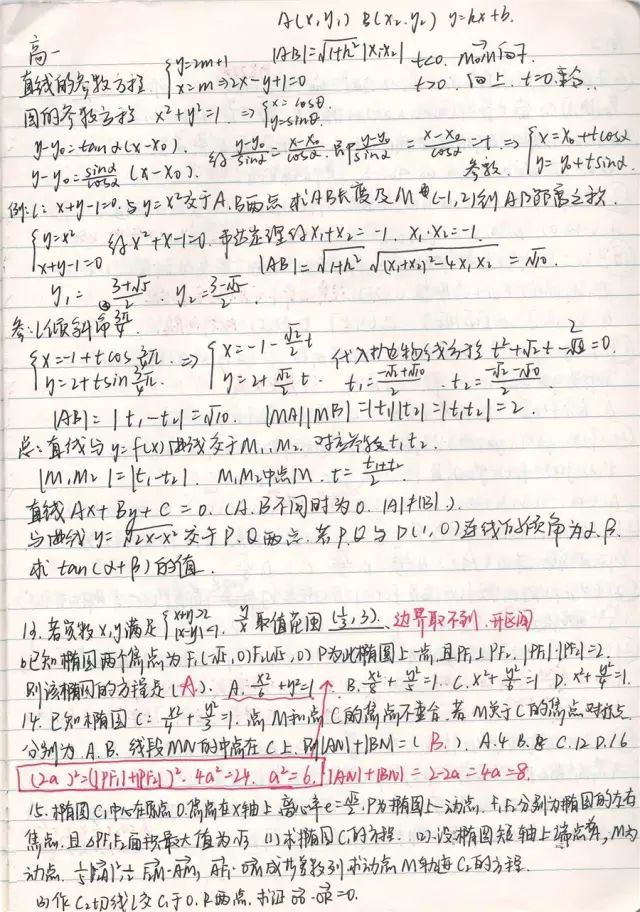 A(x₁y₁) B(x₂.y₂) y=kx+b.
高一
直线的参数方程 {y=2m+1 x=m ⇒2x-y+1=0 |AB|=√1+k² |x₁-x₂| t<0. M₀M向下
圆的参数方程 x²+y²=1 ⇒{x=cosθ. y=sinθ. t>0. 向上. t=0.重合.
y-y₀=tanα(x-x₀).
y-y₀=sinα/cosα (x-x₀). 得 y-y₀/sinα=x-x₀/cosα. 即 y-y₀/sinα = x-x₀/cosα =t ⇒ {x=x₀+tcosα y=y₀+tsinα. 参数
例:l: x+y-1=0.与y=x²交于A.B两点 求AB长度及M (-1,2)到AB距离之积.
{y=x² x+y-1=0 得x²+x-1=0. 韦达定理得x₁+x₂=-1. x₁·x₂=-1.
|AB|=√1+k² √(x₁+x₂)²-4x₁x₂ =√10.
y₁=3+√5/2. y₂=3-√5/2.
参:l倾斜角 3π/4.
{x=-1+tcos 3/4π. y=2+tsin 3/4π. ⇒ {x=-1-√2/2t y=2+√2/2 t. 代入抛物线方程 t²+√2t-2=0.
t₁=-√2+√10/2. t₂=-√2-√10/2.
|AB|=|t₁-t₂|=√10. |MA||MB|=|t₁||t₂|=|t₁t₂|=2.
总:直线与y=f(x)曲线交于M₁,M₂. 对应参数t₁,t₂.
|M₁M₂|=|t₁-t₂|. M₁M₂中点M. t=t₁+t₂/2.
直线Ax+By+C=0.(A.B不同时为0. |A|≠|B|).
与曲线y=√2x-x² 交于P.Q两点.若P,Q与D(1,0)连线倾斜角为α.β.
求tan(α+β)的值.
13.若实数x,y满足{x+y>2 |x-y|<1. y/x取值范围(1/3,3). 边界取不到.开区间
6已知椭圆两个焦点为F₁(-√5,0)F₂(√5,0) P为此椭圆上一点,且PF₁⊥PF₂. |PF₁|·|PF₂|=2.
则该椭圆的方程是(A). A.x²/6+y²=1 B.x²/6+y²/5=1. C.x²+y²/6=1 D.x²+y²/4=1.
14.已知椭圆C:x²/4+y²/3=1.点M和点C的焦点不重合.若M关于C的焦点对称点
分别为A.B.线段MN的中点在C上.则|AN|+|BN|=(B.). A.4 B.8 C.12 D.16
(2a)²=(|PF₁|+|PF₂|)². 4a²=24. a²=6. |AN|+|BN|=2·2a=4a=8.
15.椭圆C₁中心在原点O.焦点在x轴上.离心率e=√2/2.P为椭圆上一动点.F₁.F₂分别为椭圆的左右
焦点.且△PF₁F₂面积最大值为√3 (1)求椭圆C₁的方程. (2)设椭圆短轴上端点A,M为
动点. 成等差数列求动点M轨迹C₂的方程.
(3)作C₂切线l交C₁于Q.R两点.求证OQ·OR=0.